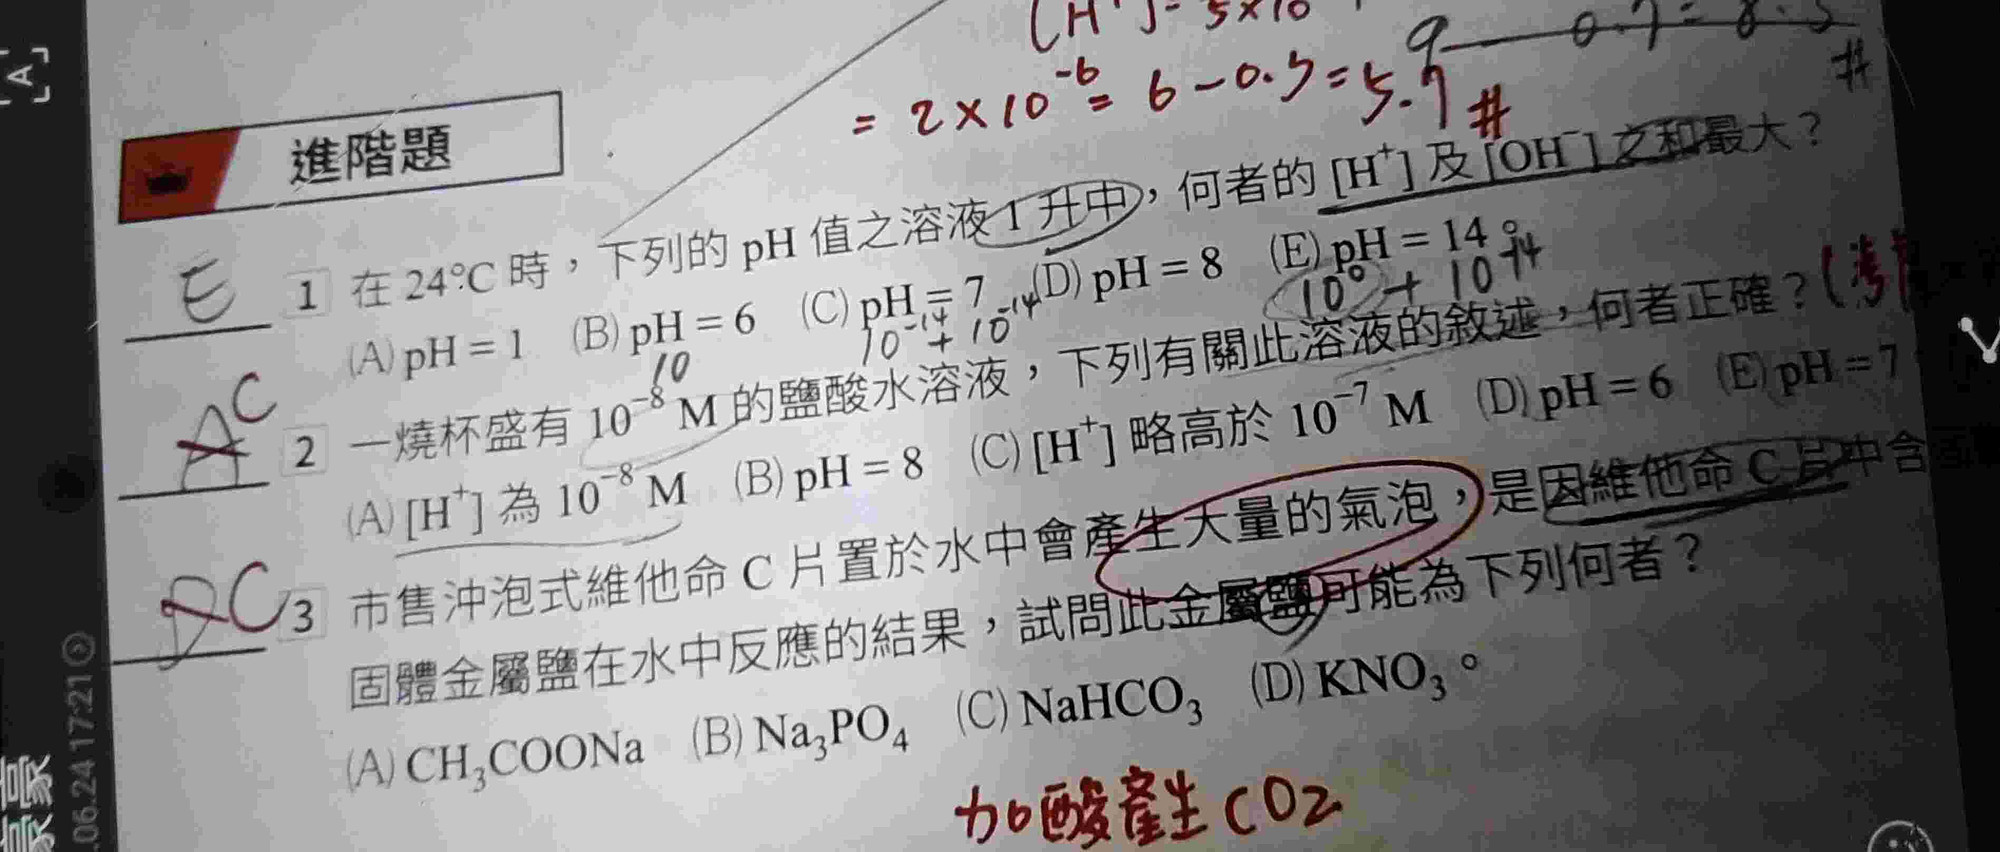 [H⁺]=5×10
9-0.7=8.3
#
=2×10⁻⁶=6-0.3=5.7#
進階題
E 1 在 24℃ 時，下列的 pH 值之溶液 1 升中，何者的 [H⁺] 及 [OH⁻] 之和最大？
(A) pH = 1 (B) pH = 6 (C) pH = 7 (D) pH = 8 (E) pH = 14。
10 10⁻¹⁴+10⁻¹⁴ 10⁰+10⁻¹⁴
AC 2 一燒杯盛有 10⁻⁸ M 的鹽酸水溶液，下列有關此溶液的敘述，何者正確？
(A) [H⁺] 為 10⁻⁸ M (B) pH = 8 (C) [H⁺] 略高於 10⁻⁷ M (D) pH = 6 (E) pH = 7
DC 3 市售沖泡式維他命 C 片置於水中會產生大量的氣泡，是因維他命 C 片中含
固體金屬鹽在水中反應的結果，試問此金屬鹽可能為下列何者？
(A) CH₃COONa (B) Na₃PO₄ (C) NaHCO₃ (D) KNO₃。
加酸產生CO2
.06.24 17:21